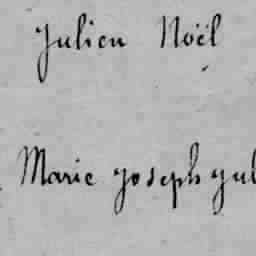 Julien Noël
Marie Joseph Jul